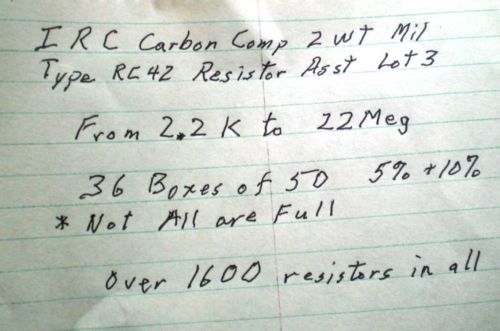 IRC Carbon Comp 2 wt Mil
Type RC42 Resistor Asst Lot 3
From 2.2K to 22Meg
36 Boxes of 50 5% + 10%
* Not All are Full
Over 1600 resistors in all